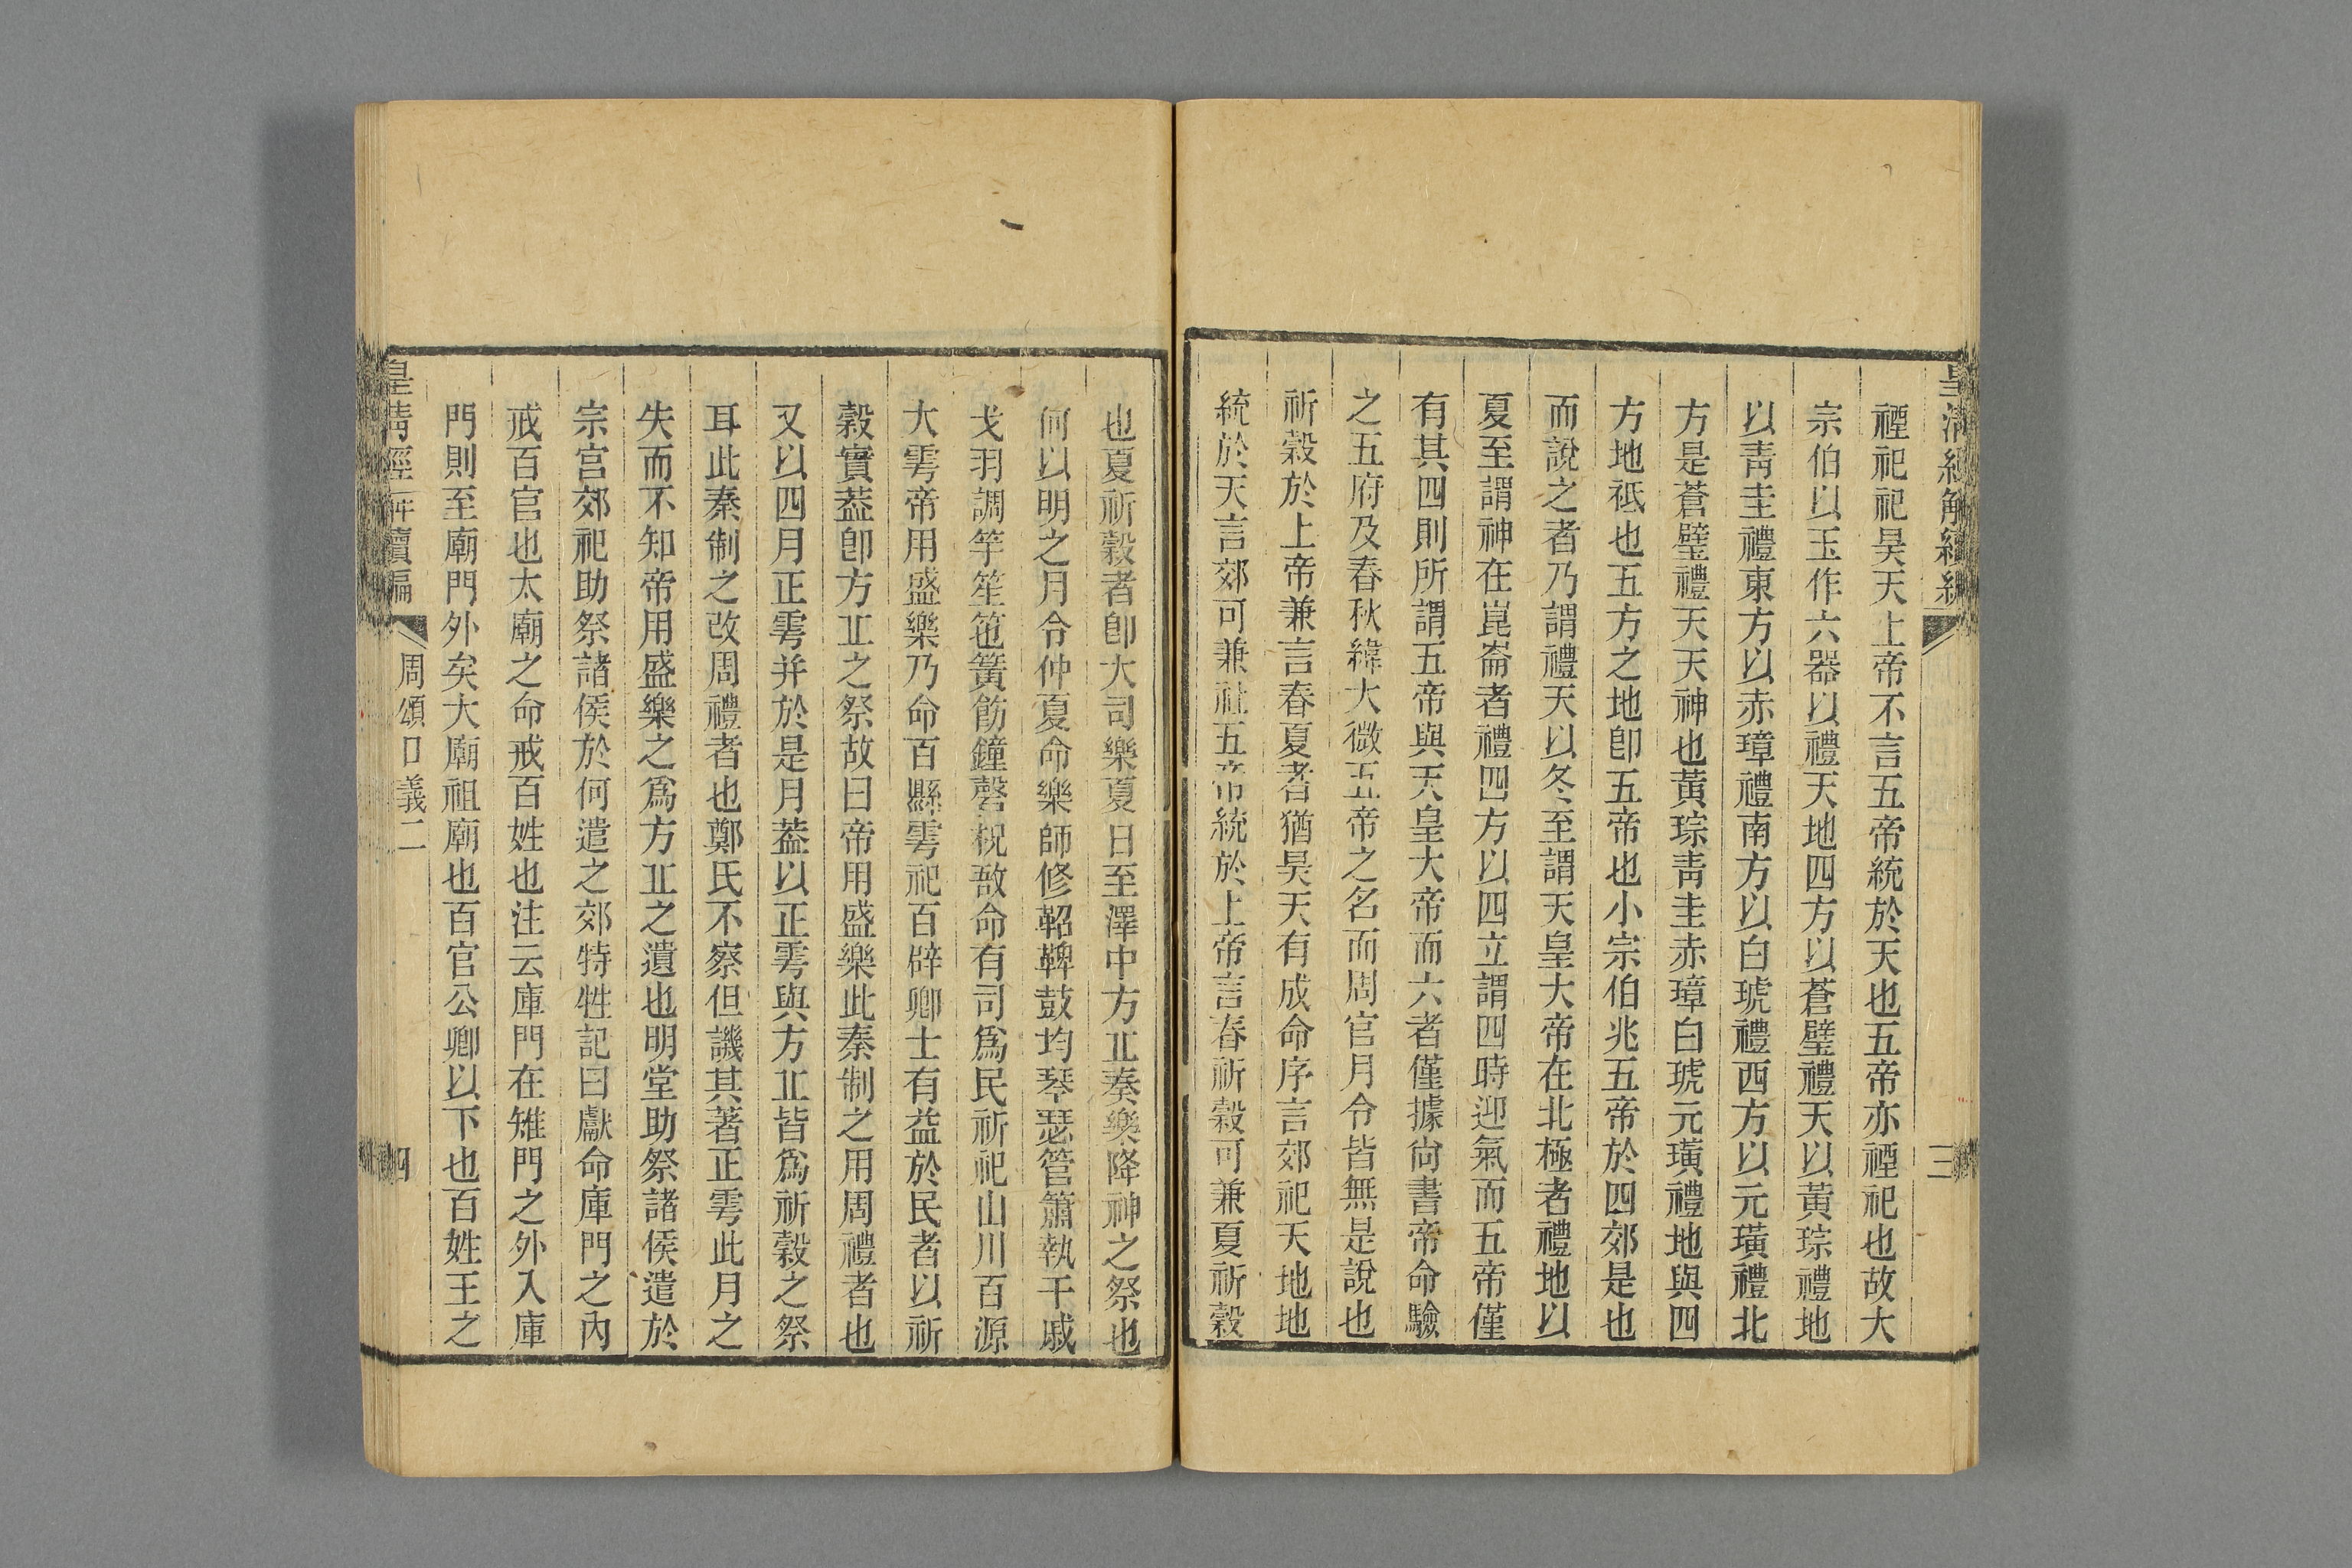 皇清經解續編
三
禋祀祀昊天上帝不言五帝統於天也五帝亦禋祀也故大
宗伯以玉作六器以禮天地四方以蒼璧禮天以黃琮禮地
以靑圭禮東方以赤璋禮南方以白琥禮西方以元璜禮北
方是蒼璧禮天天神也黃琮靑圭赤璋白琥元璜禮地與四
方地祗也五方之地卽五帝也小宗伯兆五帝於四郊是也
而說之者乃謂禮天以冬至謂天皇大帝在北極者禮地以
夏至謂神在崑崙者禮四方以四立謂四時迎氣而五帝僅
有其四則所謂五帝與天皇大帝而六者僅據尙書帝命驗
之五府及春秋緯大微五帝之名而周官月令皆無是說也
祈穀於上帝兼言春夏者猶昊天有成命序言郊祀天地地
統於天言郊可兼社五帝統於上帝言春祈穀可兼夏祈穀
也夏祈穀者卽大司樂夏日至澤中方丠奏樂降神之祭也
何以明之月令仲夏命樂師修鞀鞞鼓均琴瑟管簫執干戚
戈羽調竽笙笹簧飭鐘磬柷敔命有司爲民祈祀山川百源
大雩帝用盛樂乃命百縣雩祀百辟卿士有益於民者以祈
穀實葢卽方丠之祭故曰帝用盛樂此秦制之用周禮者也
又以四月正雩并於是月葢以正雩與方丠皆爲祈穀之祭
耳此秦制之改周禮者也鄭氏不察但譏其著正雩此月之
失而不知帝用盛樂之爲方丠之遺也明堂助祭諸侯遣於
宗宮郊祀助祭諸侯於何遣之郊特牲記曰獻命庫門之內
戒百官也太廟之命戒百姓也注云庫門在雉門之外入庫
門則至廟門外矣大廟祖廟也百官公卿以下也百姓王之
皇清經解續編
周頌口義二
四